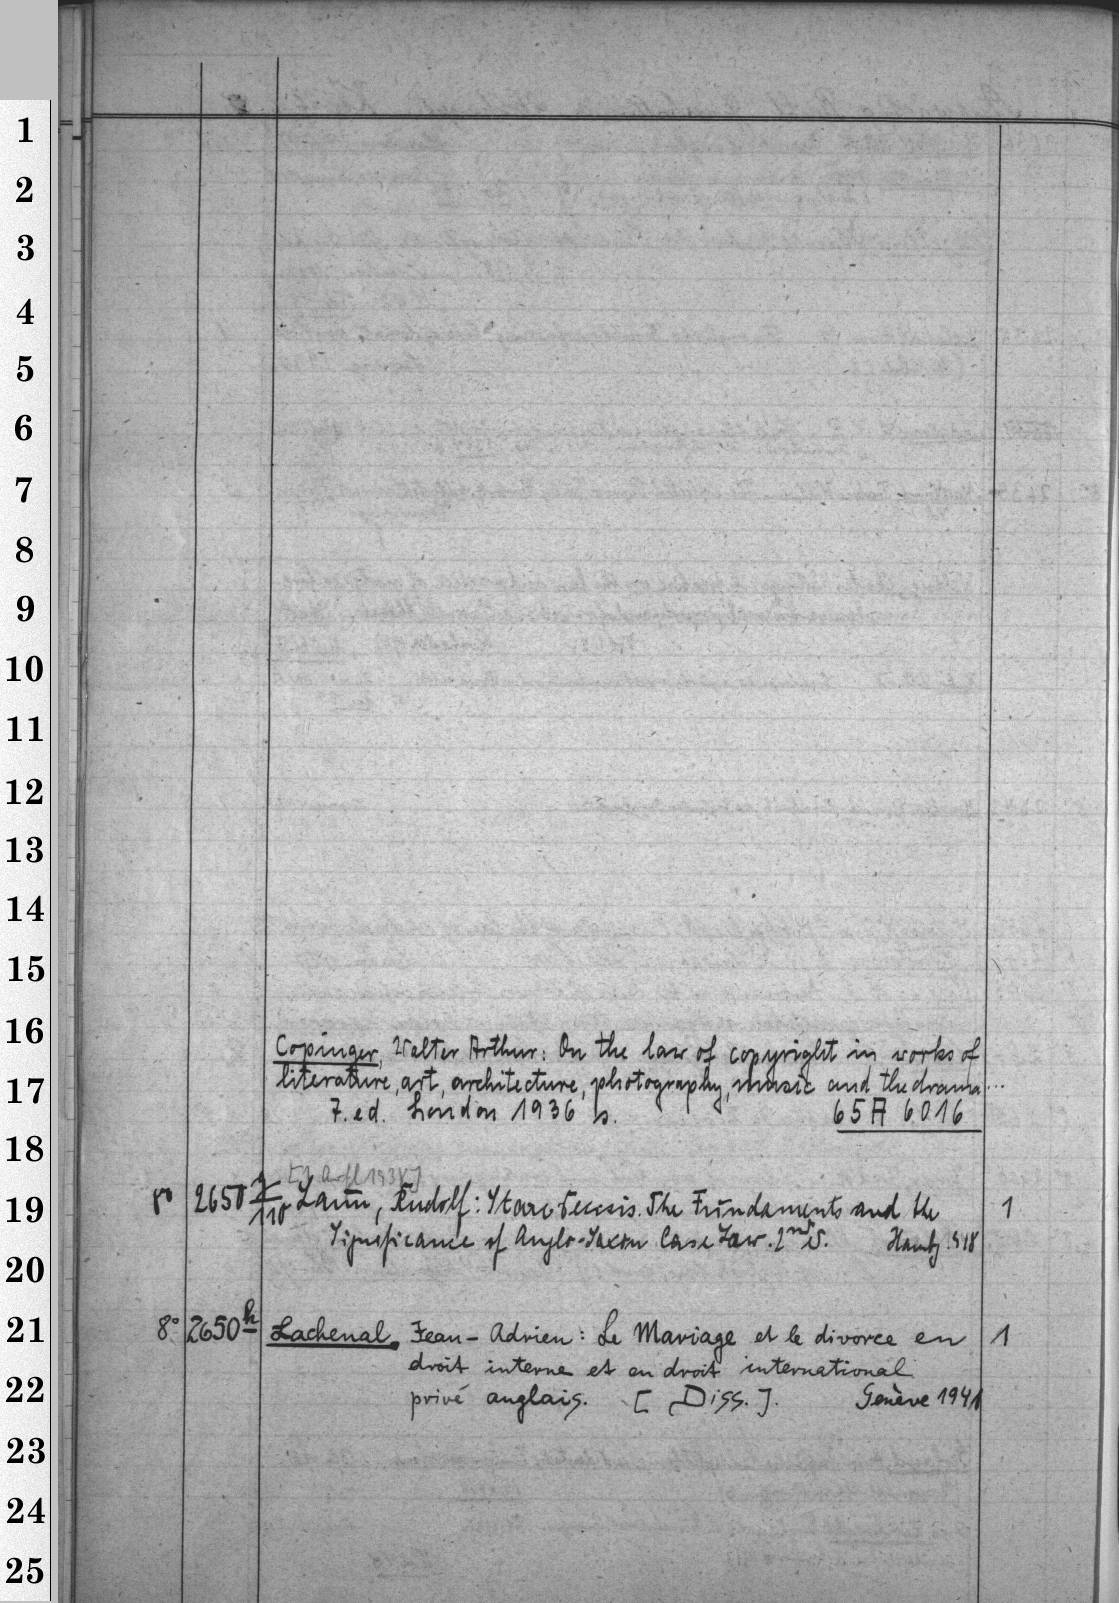 1
2
3
4
5
6
7
8
9
10
11
12
13
14
15
16
Copinger, Walter Arthur: On the law of copyright in works of
17
literature, art, architecture, photography, music and the drama...
7. ed. London 1936 s. 65 A 6016
18
[2. Aufl 1938]
19
8° 2650 110 Laun, Rudolf: Stare Decisis. The Fundaments and the 1
Significance of Anglo-Saxon Case Law. 2nd ed. Hambg.
20
21
8° 2650 h Lachenal, Jean-Adrien: Le Mariage et le divorce en 1
droit interne et en droit international
22
privé anglais. [Diss.]. Genève 1941
23
24
25